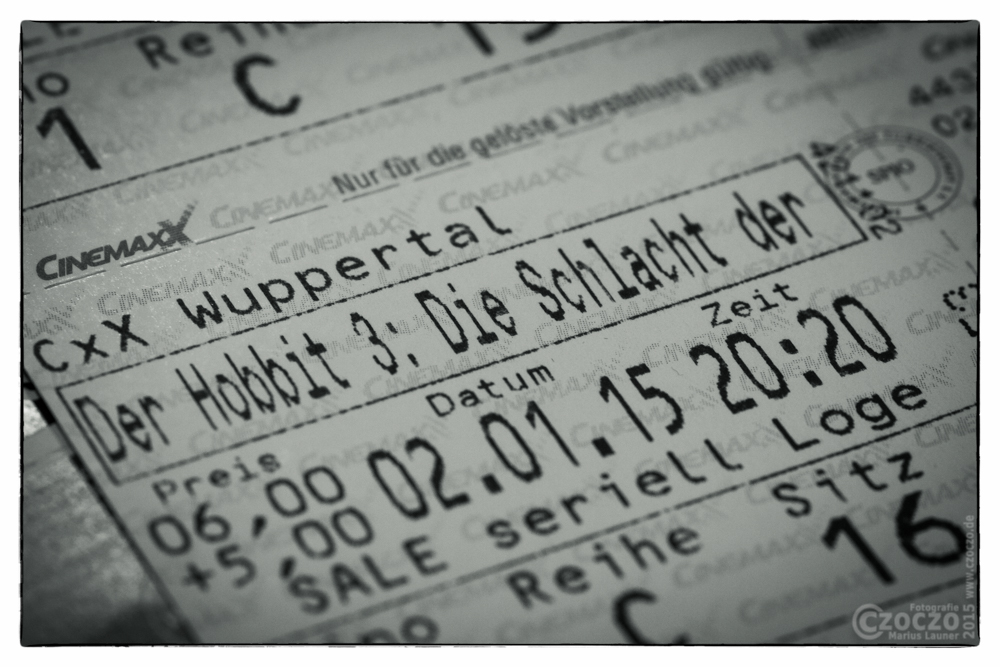 Reihe
1 C
Nur für die gelöste Vorstellung gültig
CINEMAXX
CxX Wuppertal
Der Hobbit 3: Die Schlacht der
Preis Datum Zeit
06,00 02.01.15 20:20
+5,00
SALE seriell Loge
Reihe Sitz
C 16
Fotografie
CZOCZO
Marius Launer
2015 www.czoczo.de